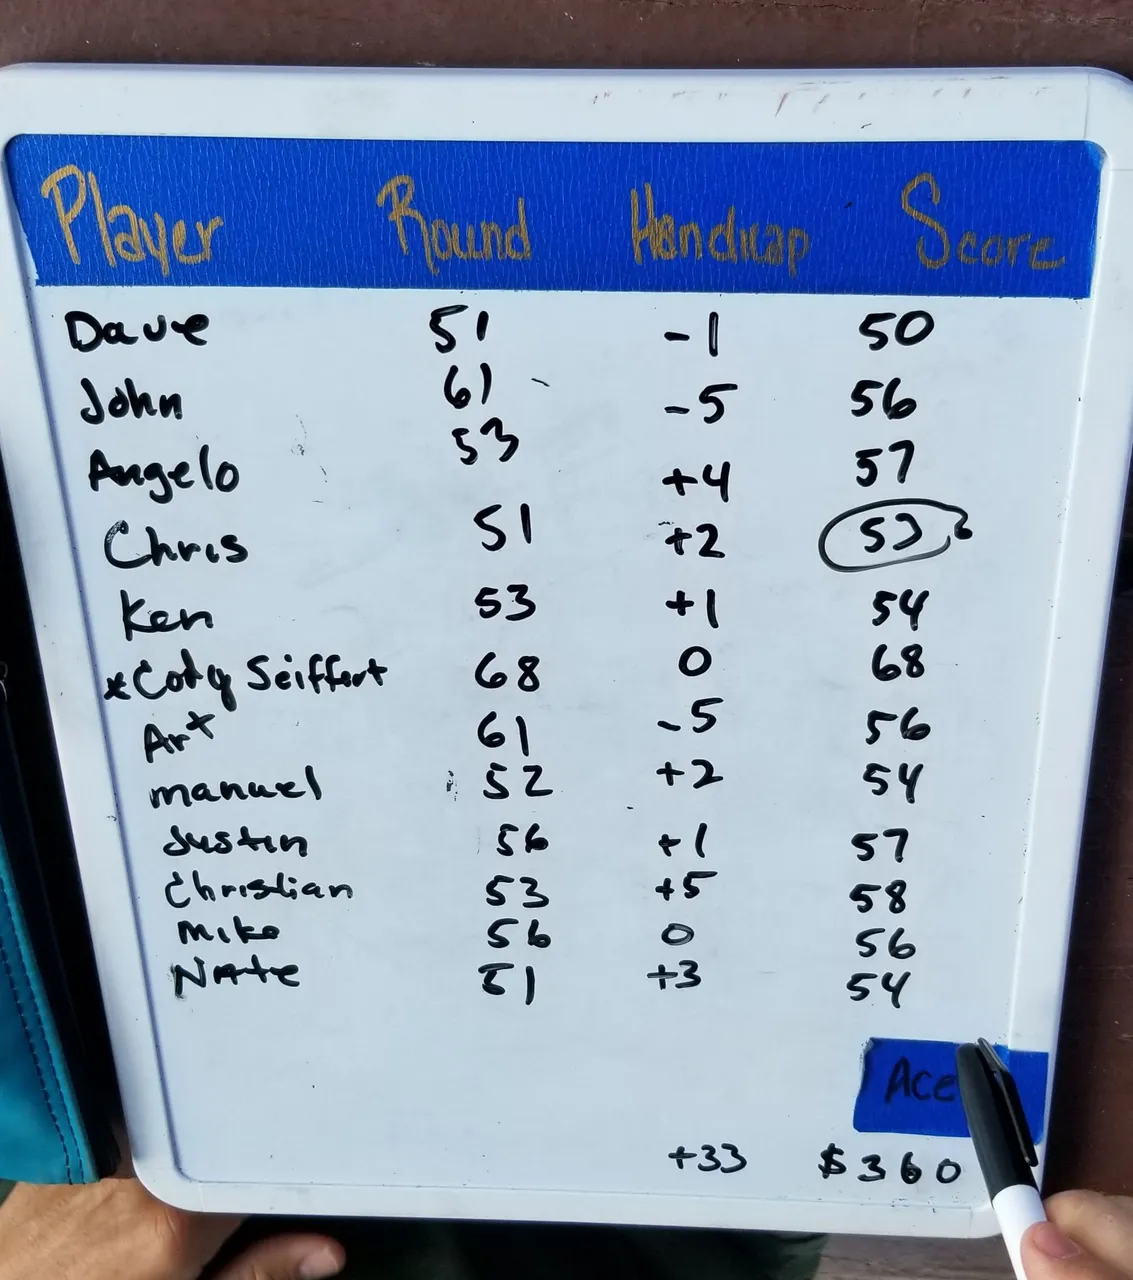 Player Round Handicap Score
Dave 51 -1 50
John 61 -5 56
Angelo 53 +4 57
Chris 51 +2 53
Ken 53 +1 54
*Cody Seiffert 68 0 68
Art 61 -5 56
manuel 52 +2 54
Justin 56 +1 57
Christian 53 +5 58
Mike 56 0 56
NAte 51 +3 54
Ace
+33 $360